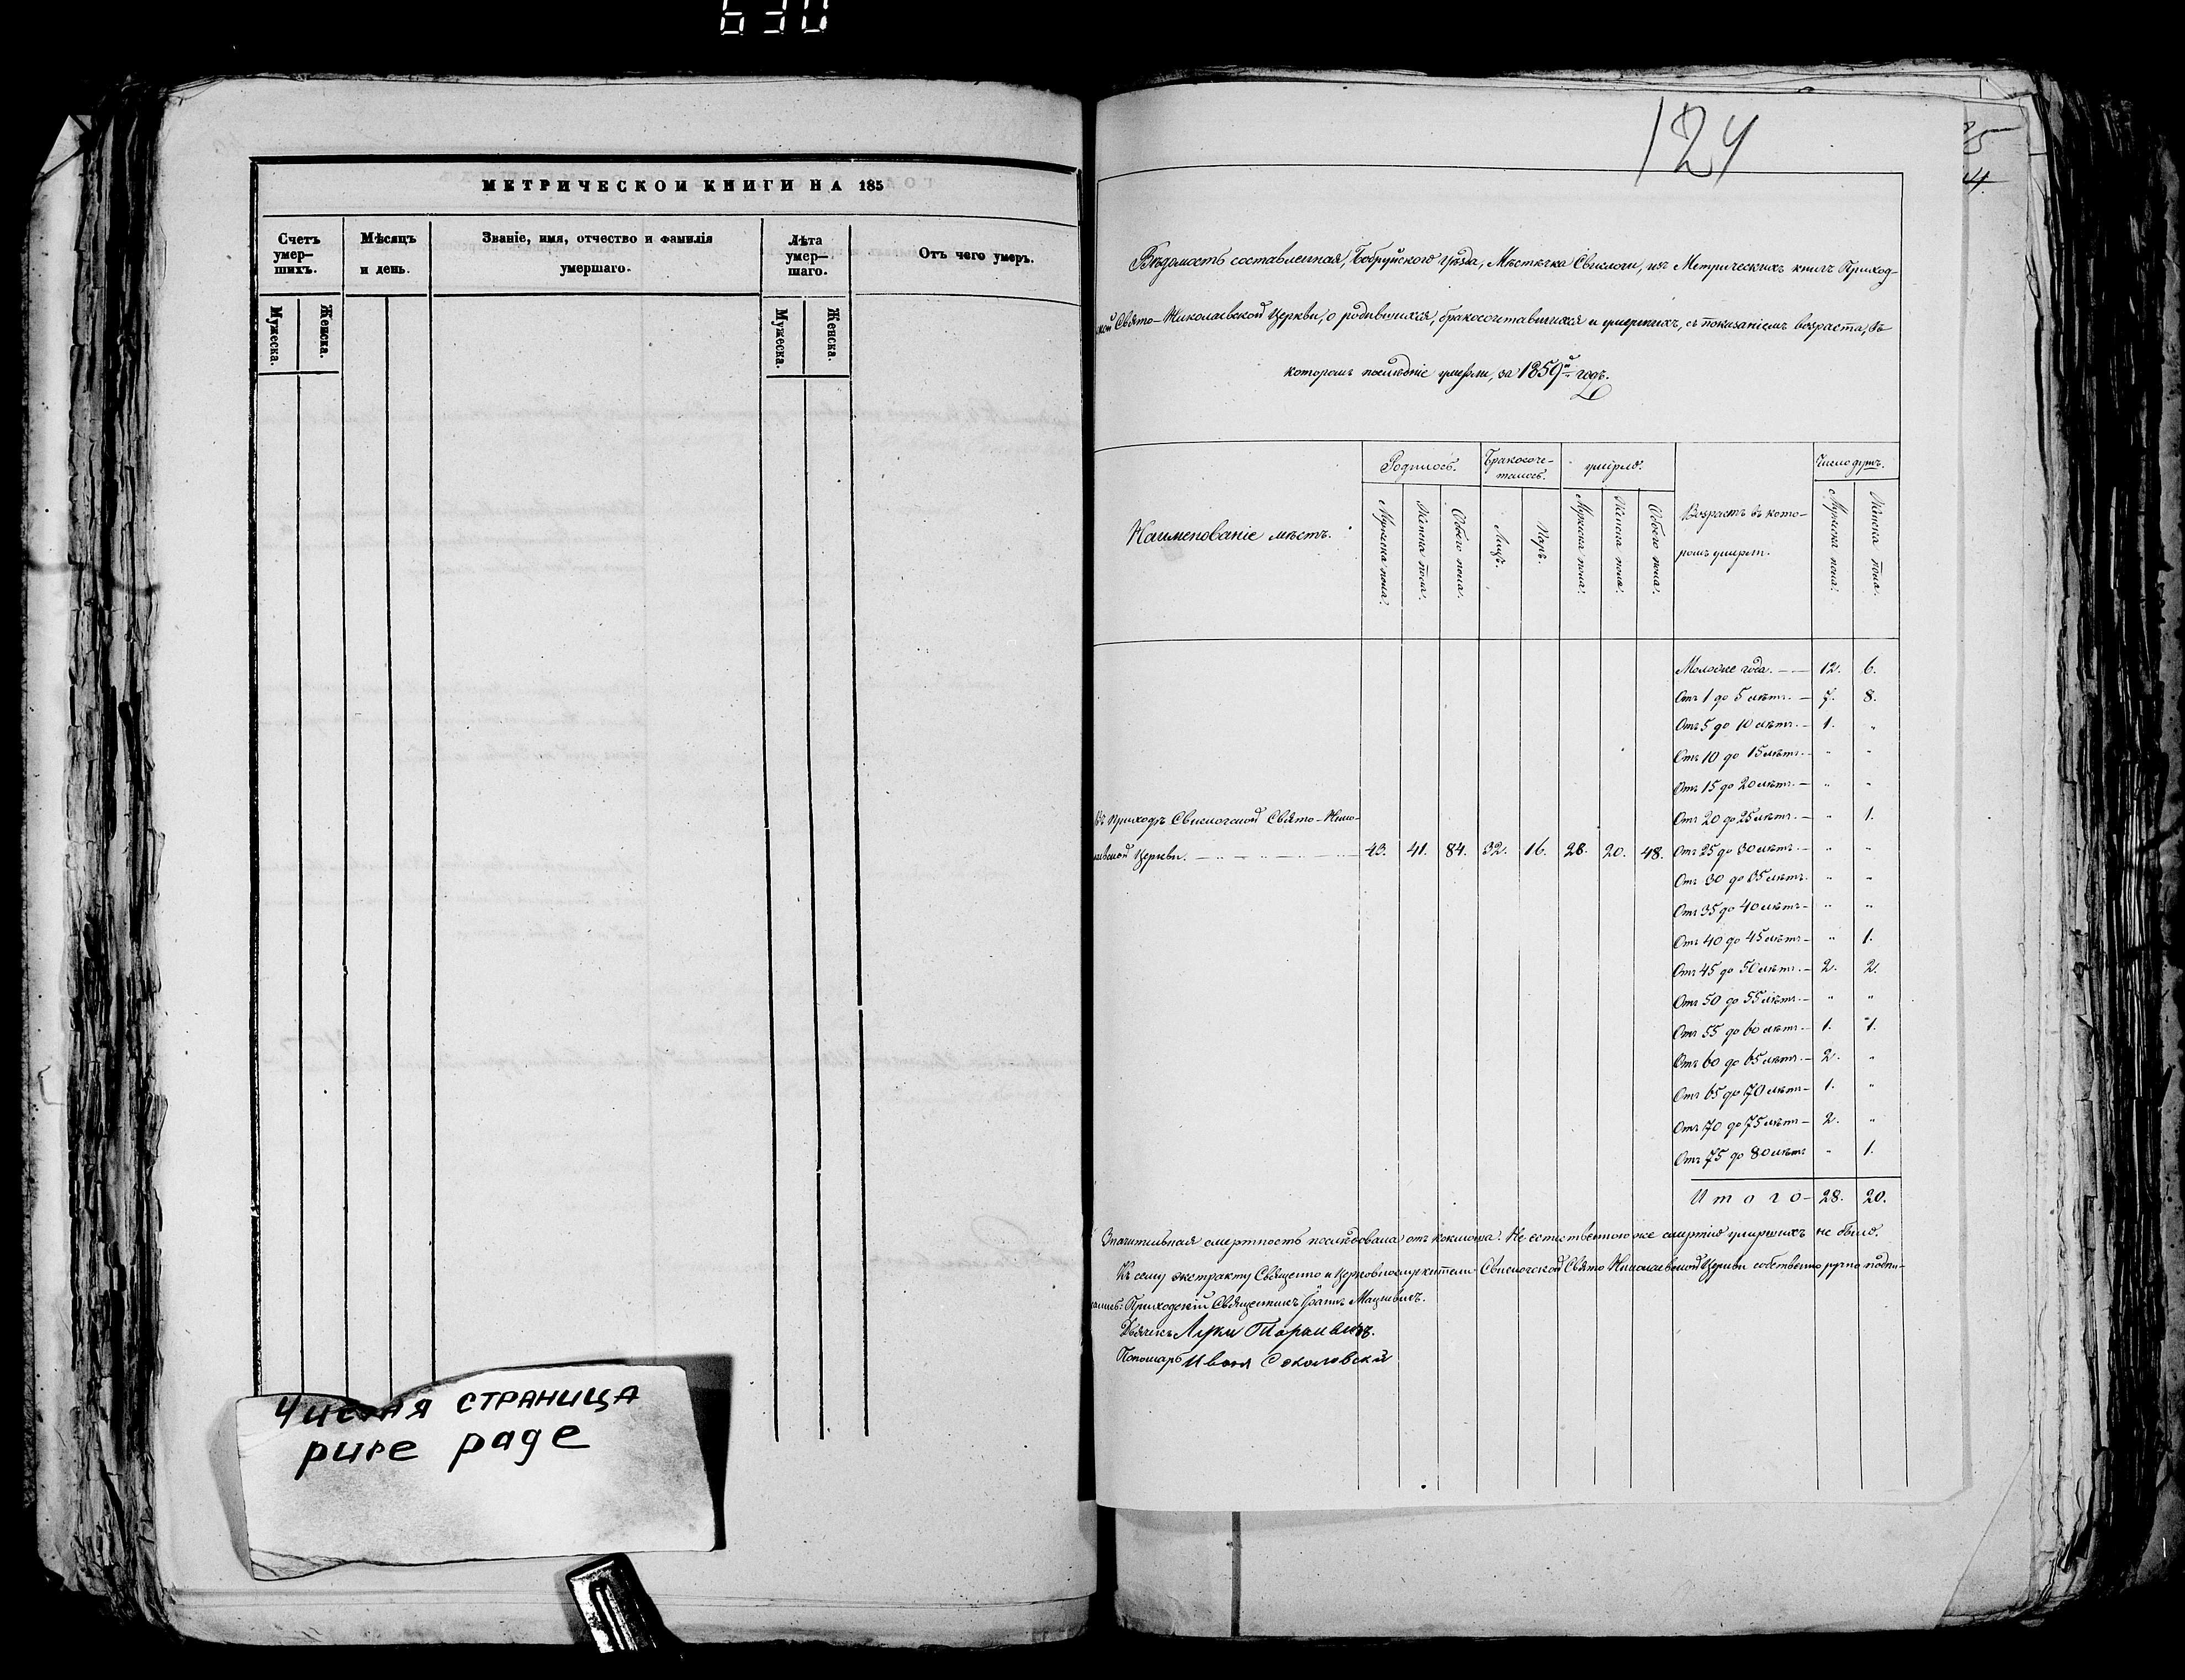 630
МЕТРИЧЕСКОЙ КНИГИ НА 185
Счетъ умер—шихъ.
Мѣсяцъ и день.
Званіе, имя, отчество и фамилія умершаго.
Лѣта умер—шаго.
Отъ чего умеръ.
Мужеска.
Женска.
Мужеска.
Женска.
Чистая страница
pure page
124
Вѣдомость составленная, Бобруйского уѣзда, Мѣстечка Свислочи, изъ Метрическихъ книгъ Приход-
ской Свято-Николаевской Церкви, о родившихся, бракосочетавшихся и умершихъ, съ показаніемъ возраста, въ
которомъ послѣдніе умерли, за 1859й годъ.
Наименованіе мѣстъ.
Родилось.
Бракосоче-
талось.
умерло.
Возрастъ въ кото-
ромъ умерли.
Число душъ.
Мужеска пола.
Женска пола.
Обоего пола.
Лицъ.
Паръ.
Мужеска пола.
Женска пола.
Обоего пола.
Мужеска пола.
Женска пола.
Моложе года. — 12. 6.
Отъ 1 до 5 лѣтъ. — 7. 8.
Отъ 5 до 10 лѣтъ. — 1. „
Отъ 10 до 15 лѣтъ. — „ „
Отъ 15 до 20 лѣтъ. — „ „
Въ Приходѣ Свислочской Свято-Нико- Отъ 20 до 25 лѣтъ. — „ 1.
лаевской Церкви. — 43. 41. 84. 32. 16. 28. 20. 48. Отъ 25 до 30 лѣтъ. — „ „
Отъ 30 до 35 лѣтъ. „ „
Отъ 35 до 40 лѣтъ — „ „
Отъ 40 до 45 лѣтъ — „ 1.
Отъ 45 до 50 лѣтъ. — 2. 2.
Отъ 50 до 55 лѣтъ. — „ „
Отъ 55 до 60 лѣтъ. — 1. 1.
Отъ 60 до 65 лѣтъ. — 2. „
Отъ 65 до 70 лѣтъ — 1. „
Отъ 70 до 75 лѣтъ — 2. „
Отъ 75 до 80 лѣтъ „ 1.
Итого — 28. 20.
Значительная смертность послѣдовала отъ коклюша. Не естественною же смертію умершихъ не было.
Къ сему экстракту Священно и Церковнослужители Свислочской Свято Николаевской Церкви собственно ручно подпи-
сались: Приходскій Священникъ Іоаннъ Мацкевичъ.
Дьячекъ Лука
Пономарь Иванъ Соколовскій